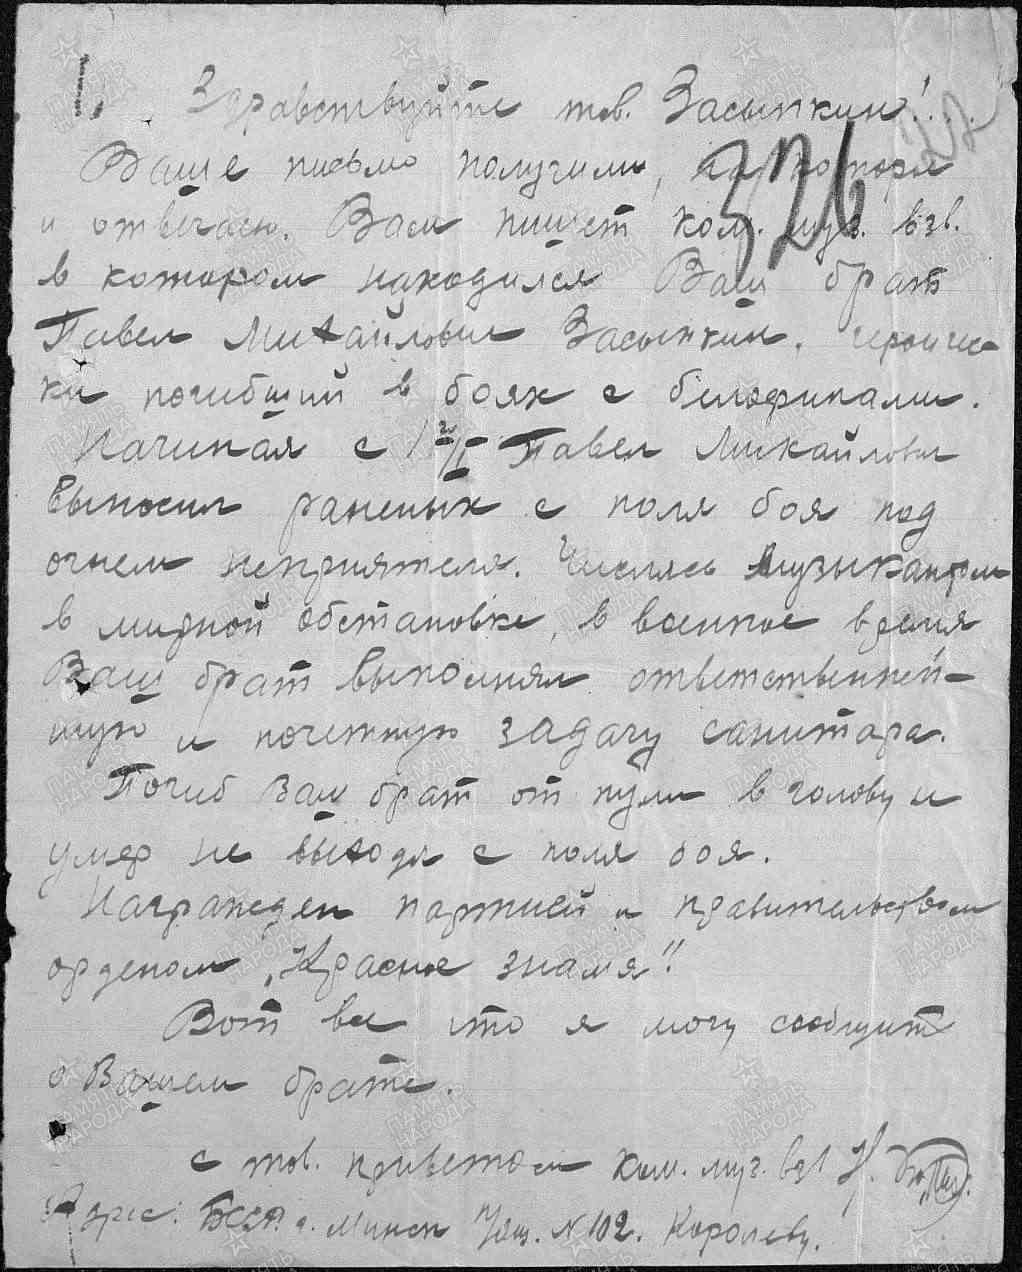 1.
Здравствуйте тов. Засыпкин!...
326
Ваше письмо получили, на которое
и отвечаю. Вам пишет ком. муз. взв.
в котором находился Ваш брат
Павел Михайлович Засыпкин, героичес-
ки погибший в боях с белофинами.
Начиная с 1 Павел Михайлович
выносил раненых с поля боя под
огнем неприятеля. Числясь музыкантом
в мирной обстановке, в военное время
Ваш брат выполнял ответственней-
шую и почетную задачу санитара.
Погиб Ваш брат от пули в голову и
умер не выходя с поля боя.
Награжден партией и правительством
орденом "Красное знамя"!
Вот все что я могу сообщить
о Вашем брате.
с тов. приветом ком. муз. взв Н.
Адрес: БССР г. Минск Уч. № 102. Королеву.
ПАМЯТЬ НАРОДА